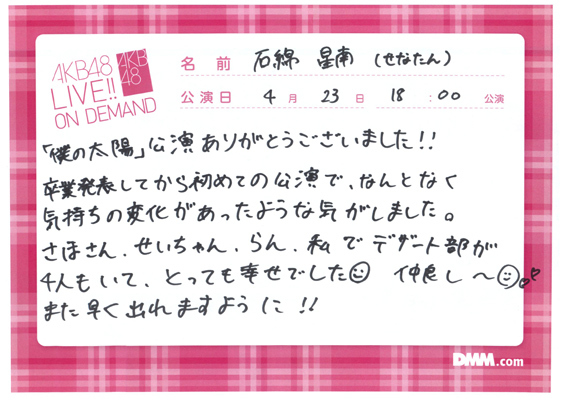 AKB48
LIVE!!
ON DEMAND
AKB
48
名 前 石綿 星南 (せなたん)
公演日 4 月 23 日 18 : 00 公演
「僕の太陽」公演ありがとうございました!!
卒業発表してから初めての公演で、なんとなく
気持ちの変化があったような気がしました。
さほさん、せいちゃん、らん、私でデザート部が
4人もいて、とっても幸せでした☺ 仲良し〜☺♡♡
また早く出れますように!!
DMM.com